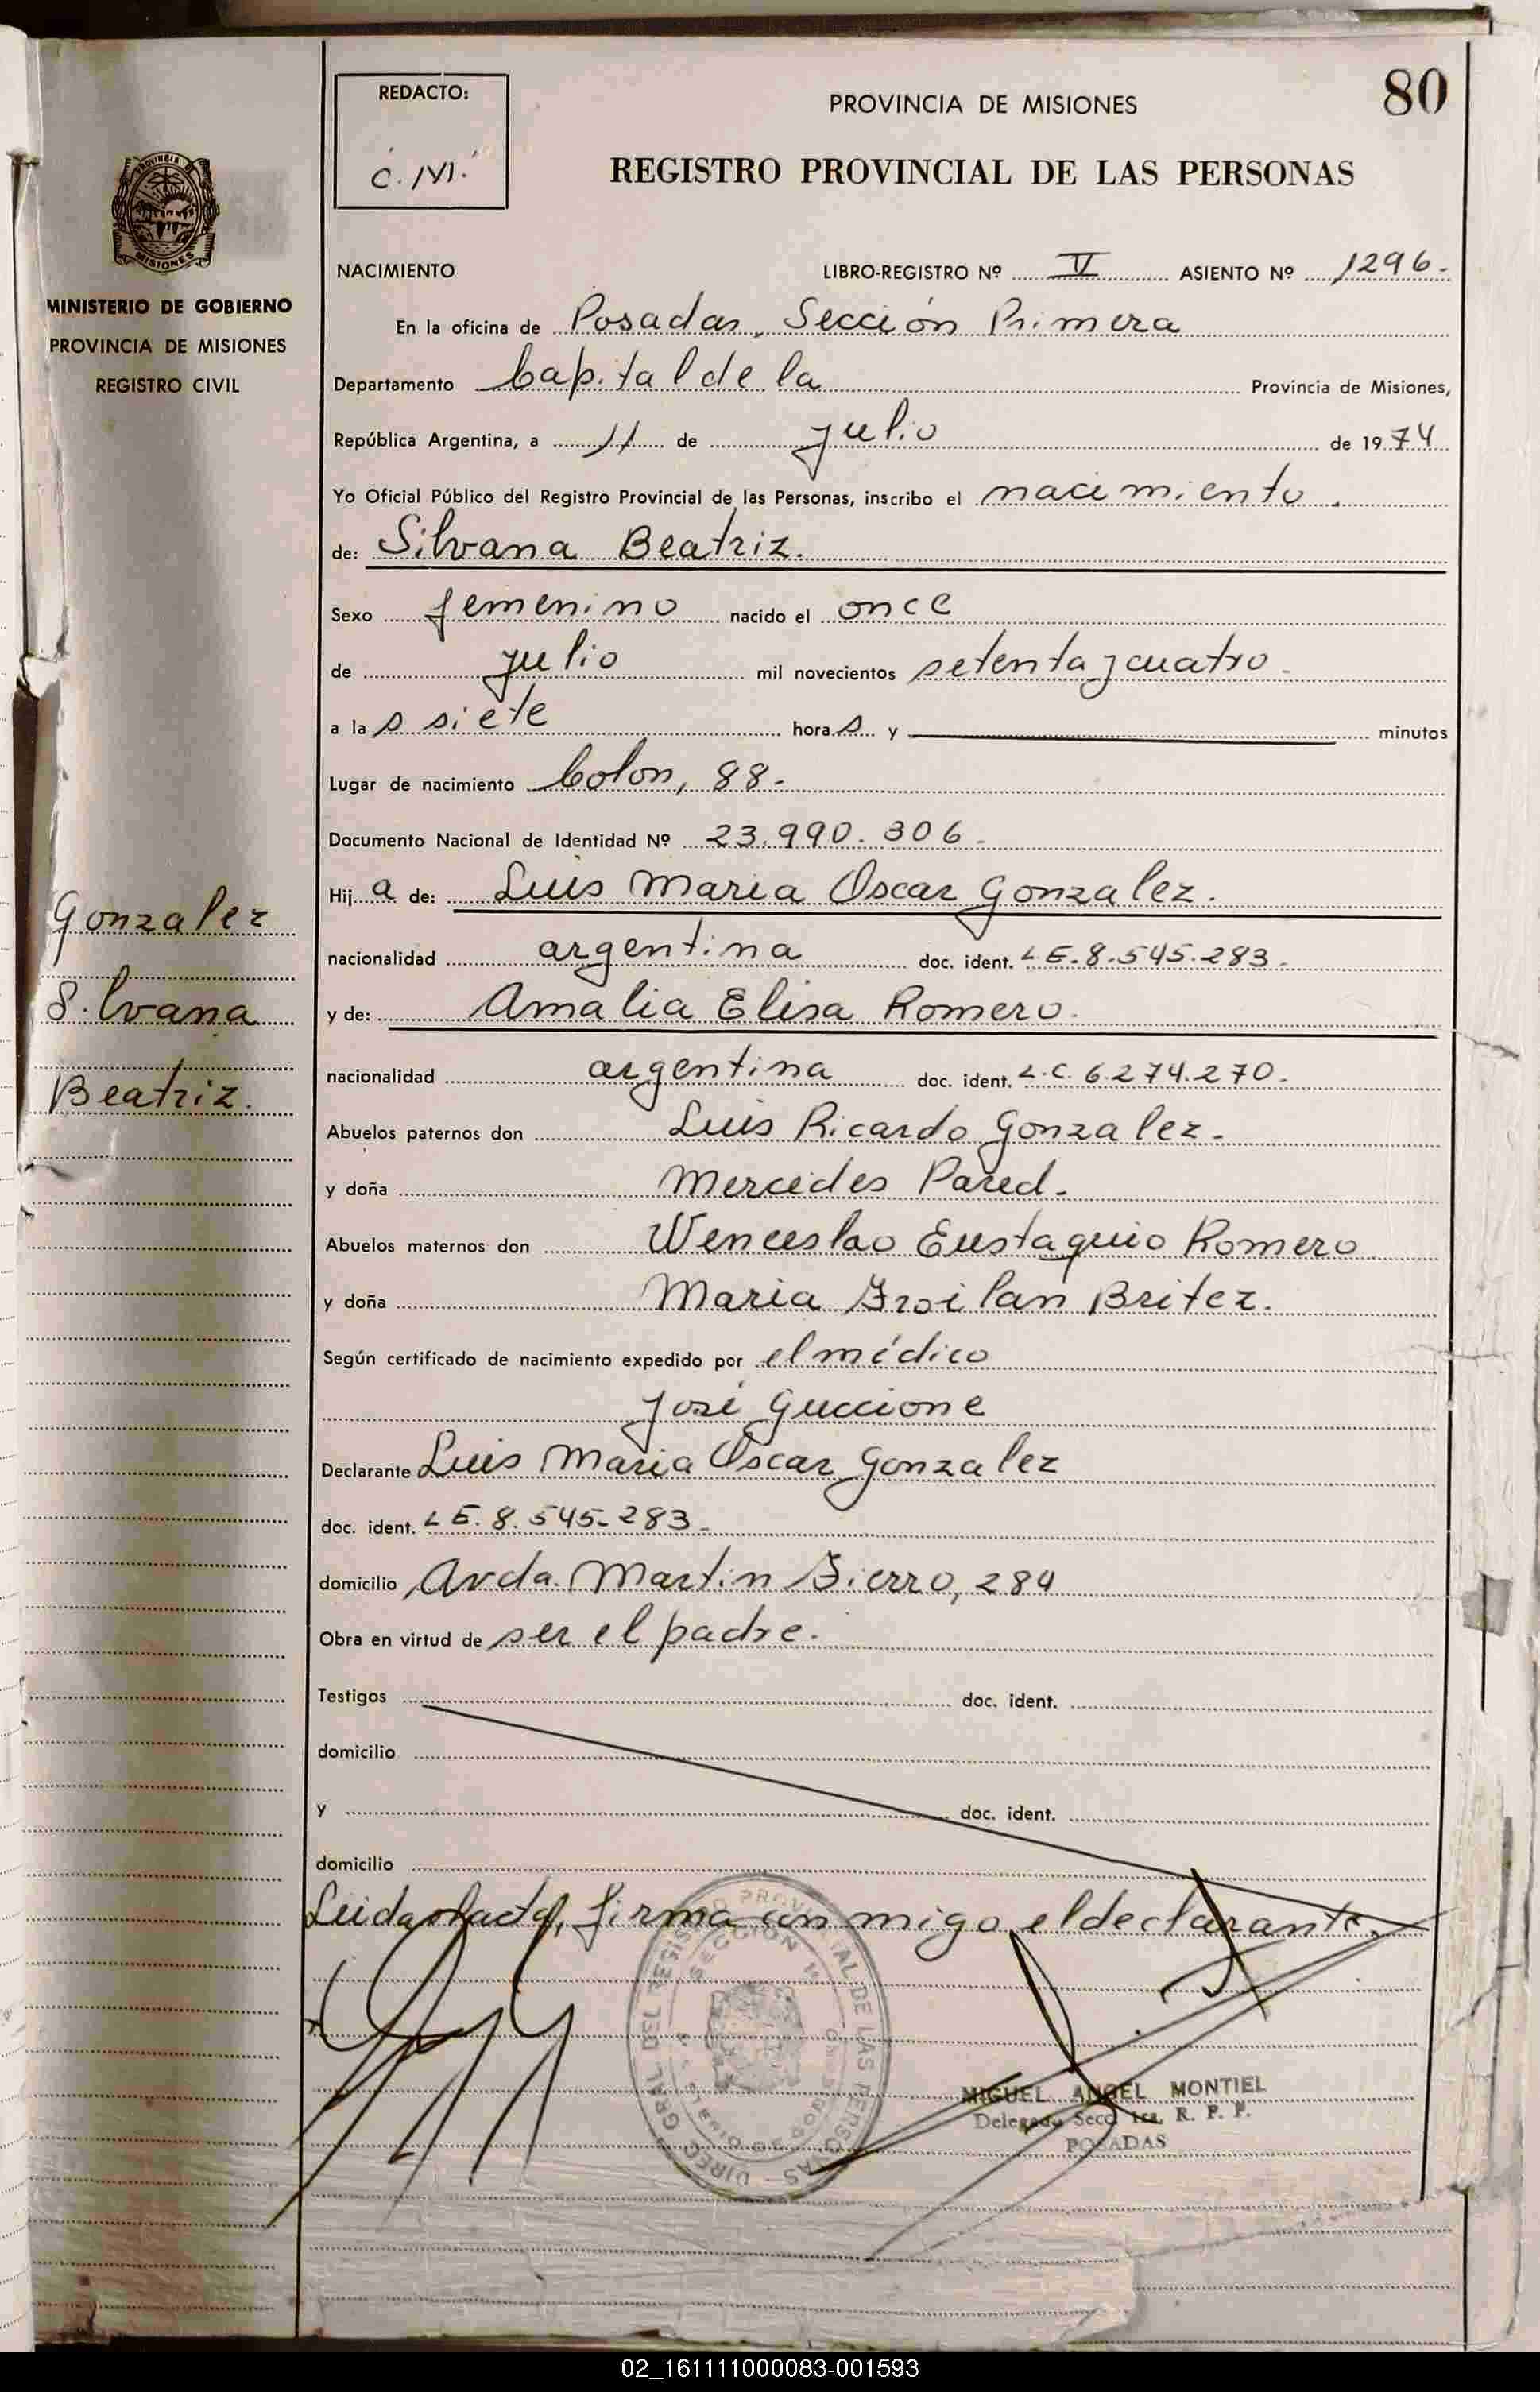 80
REDACTO:
C. M.
PROVINCIA DE MISIONES
REGISTRO PROVINCIAL DE LAS PERSONAS
PROVINCIA
MISIONES
MINISTERIO DE GOBIERNO
PROVINCIA DE MISIONES
REGISTRO CIVIL
Gonzalez
Silvana
Beatriz.
NACIMIENTO LIBRO-REGISTRO Nº V ASIENTO Nº 1296.-
En la oficina de Posadas, Sección Primera
Departamento Capital de la Provincia de Misiones,
República Argentina, a 11 de julio de 1974
Yo Oficial Público del Registro Provincial de las Personas, inscribo el nacimiento.
de: Silvana Beatriz.
Sexo femenino nacido el once
de julio mil novecientos setenta y cuatro-
a las siete horas y minutos
Lugar de nacimiento Colon, 88.-
Documento Nacional de Identidad Nº 23.990.306.-
Hija de: Luis Maria Oscar Gonzalez.
nacionalidad argentina doc. ident. L E. 8.545.283.-
y de: Amalia Elisa Romero.
nacionalidad argentina doc. ident. L.C. 6.274.270.-
Abuelos paternos don Luis Ricardo Gonzalez.-
y doña Mercedes Pared.-
Abuelos maternos don Wenceslao Eustaquio Romero
y doña Maria Froilan Britez.
Según certificado de nacimiento expedido por el médico
José Guccione
Declarante Luis Maria Oscar Gonzalez
doc. ident. L E. 8.545.283.-
domicilio Avda. Martin Fierro, 284
Obra en virtud de ser el padre.
Testigos doc. ident.
domicilio
y doc. ident.
domicilio
Leida el acta, firma conmigo el declarante.
DIREC. GRAL DEL REGISTRO PROVINCIAL DE LAS PERSONAS
SECCION 1ª
MIGUEL ANGEL MONTIEL
Delegado Secc. 1ra. R. P. P.
POSADAS
02_161111000083-001593